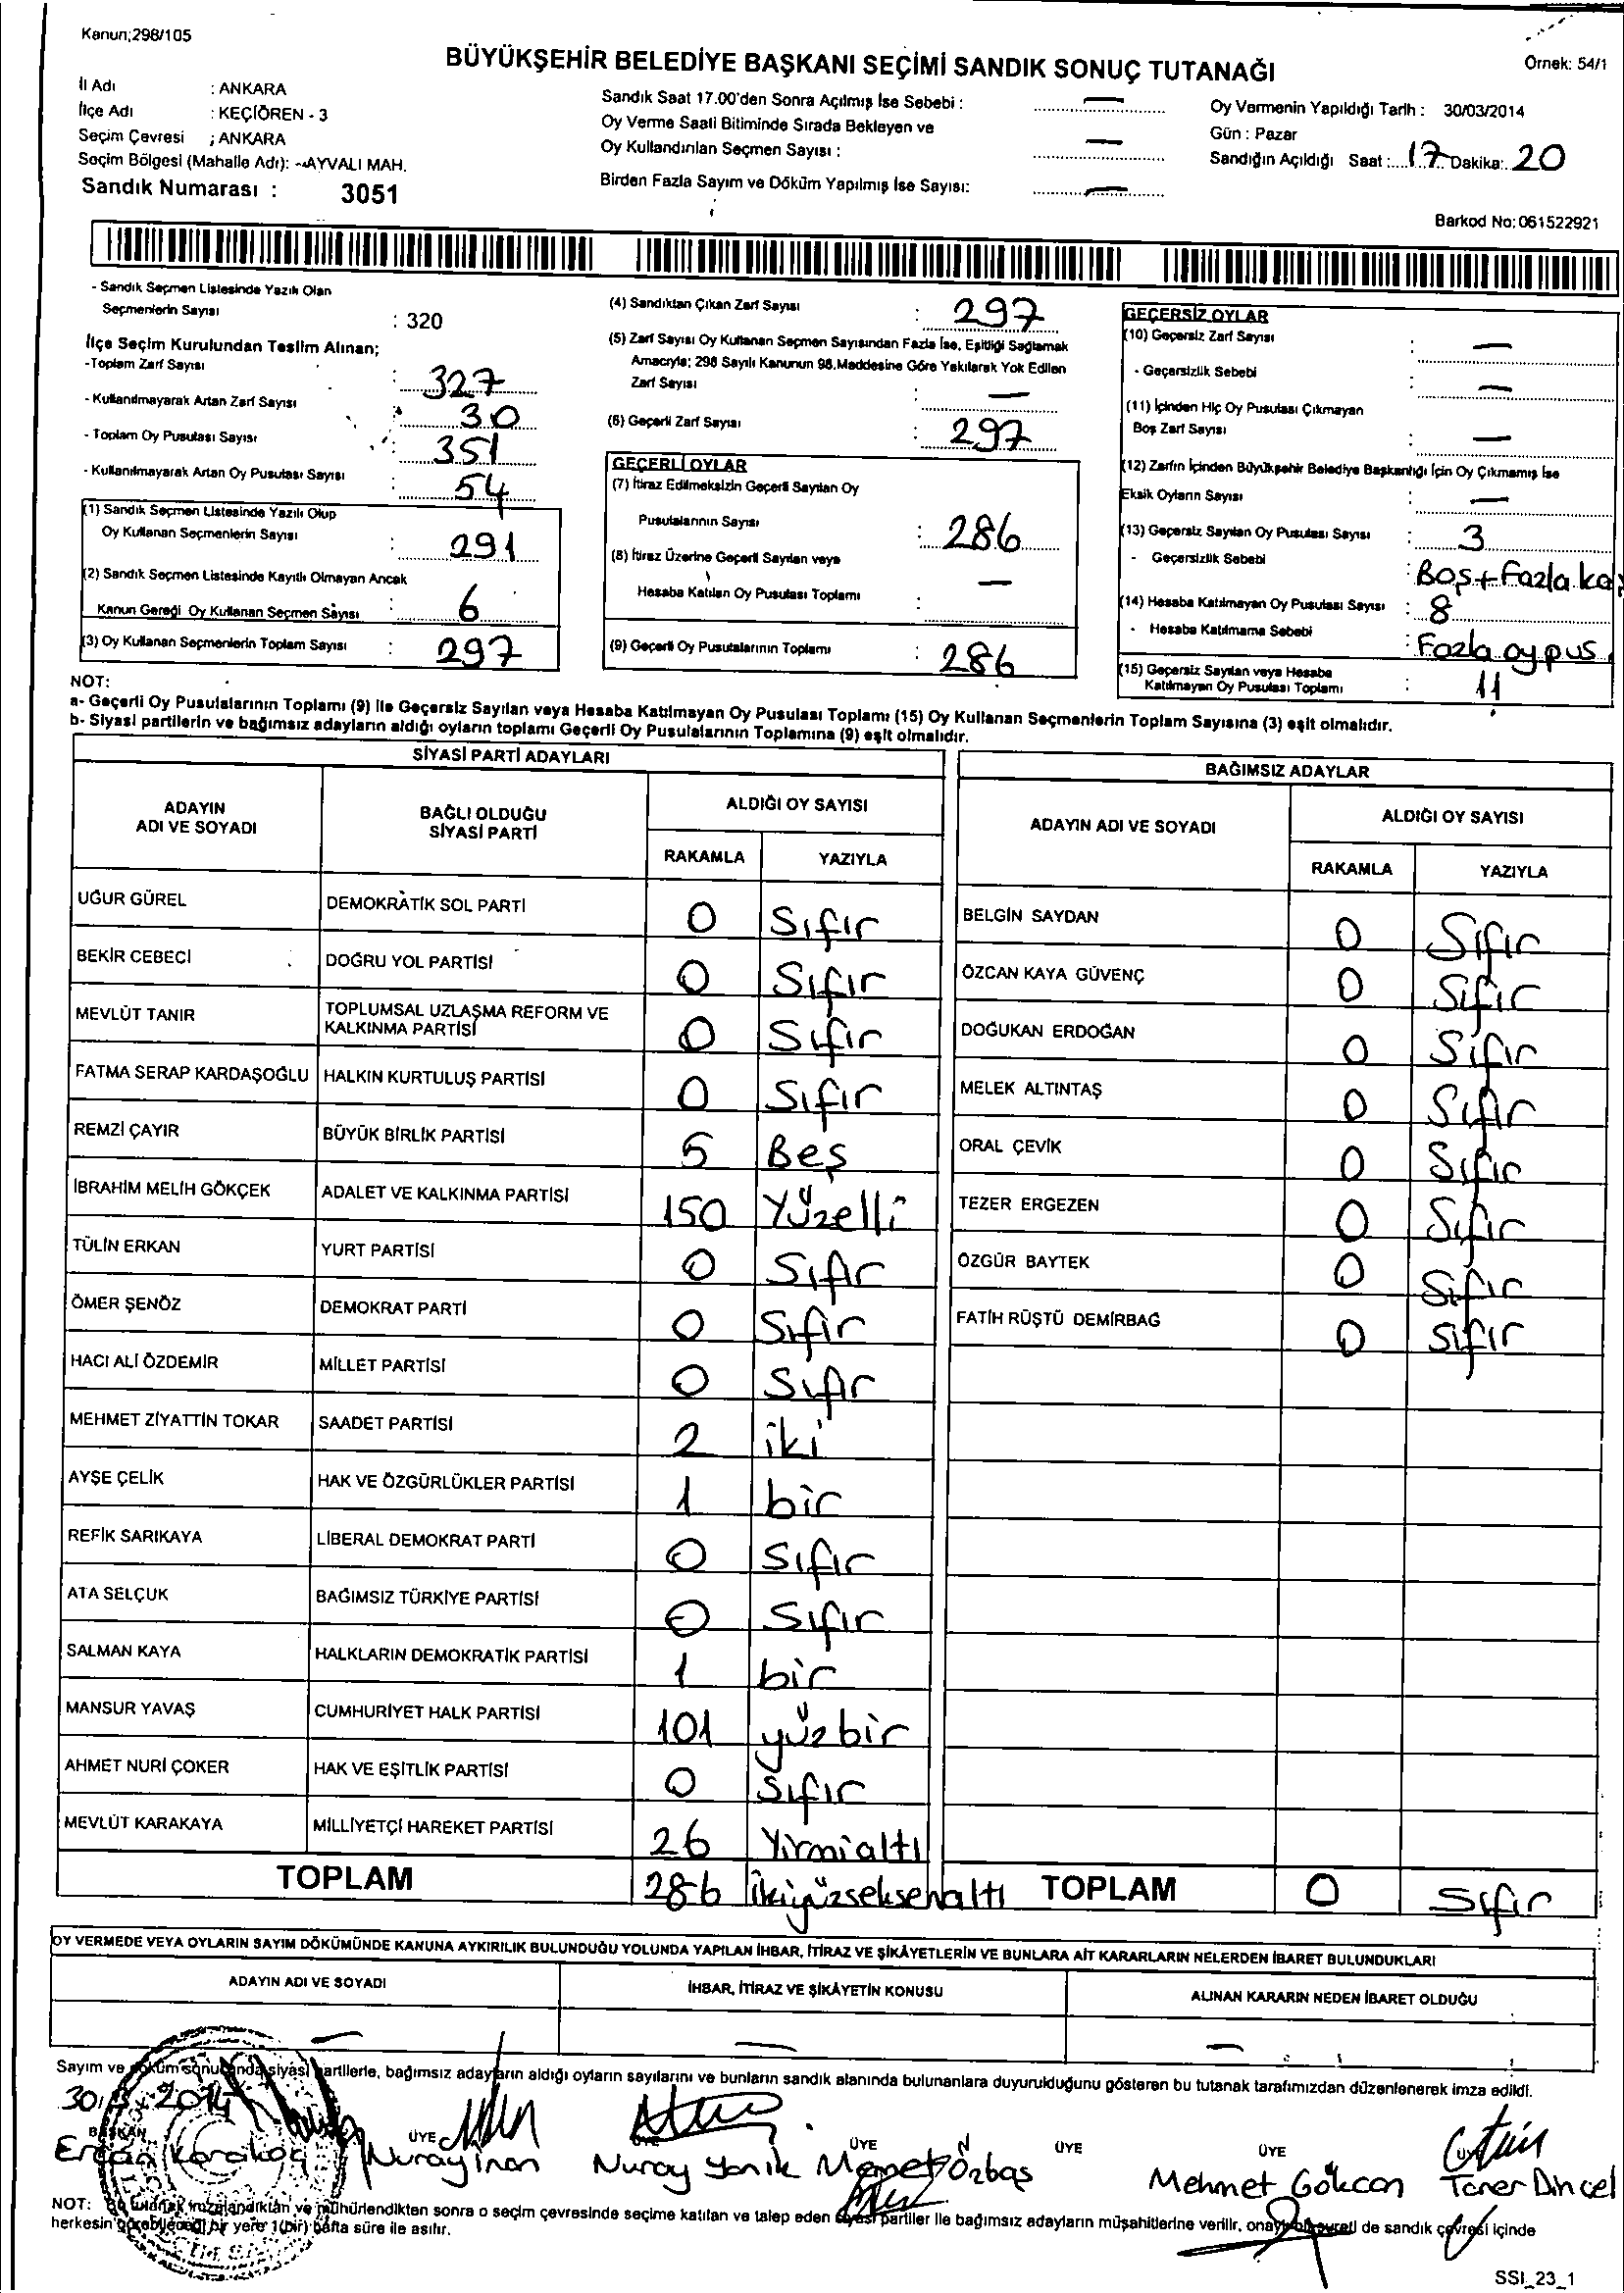 Kanun;298/105
BÜYÜKŞEHİR BELEDİYE BAŞKANI SEÇİMİ SANDIK SONUÇ TUTANAĞI
Örnek: 54/1
İl Adı : ANKARA
İlçe Adı : KEÇİÖREN - 3
Seçim Çevresi ; ANKARA
Seçim Bölgesi (Mahalle Adı): --AYVALI MAH.
Sandık Numarası : 3051
Sandık Saat 17.00'den Sonra Açılmış İse Sebebi : —
Oy Verme Saati Bitiminde Sırada Bekleyen ve
Oy Kullandırılan Seçmen Sayısı : —
Birden Fazla Sayım ve Döküm Yapılmış İse Sayısı: —
Oy Vermenin Yapıldığı Tarih : 30/03/2014
Gün : Pazar
Sandığın Açıldığı Saat : 17 Dakika: 20
Barkod No: 061522921
- Sandık Seçmen Listesinde Yazılı Olan
Seçmenlerin Sayısı : 320
İlçe Seçim Kurulundan Teslim Alınan;
-Toplam Zarf Sayısı : 327
- Kullanılmayarak Artan Zarf Sayısı : 30
- Toplam Oy Pusulası Sayısı : 351
- Kullanılmayarak Artan Oy Pusulası Sayısı : 54
(1) Sandık Seçmen Listesinde Yazılı Olup
Oy Kullanan Seçmenlerin Sayısı : 291
(2) Sandık Seçmen Listesinde Kayıtlı Olmayan Ancak
Kanun Gereği Oy Kullanan Seçmen Sayısı : 6
(3) Oy Kullanan Seçmenlerin Toplam Sayısı : 297
(4) Sandıktan Çıkan Zarf Sayısı : 297
(5) Zarf Sayısı Oy Kullanan Seçmen Sayısından Fazla İse, Eşitliği Sağlamak
Amacıyla; 298 Sayılı Kanunun 98.Maddesine Göre Yakılarak Yok Edilen
Zarf Sayısı : —
(6) Geçerli Zarf Sayısı : 297
GEÇERLİ OYLAR
(7) İtiraz Edilmeksizin Geçerli Sayılan Oy
Pusulalarının Sayısı : 286
(8) İtiraz Üzerine Geçerli Sayılan veya
Hesaba Katılan Oy Pusulası Toplamı : —
(9) Geçerli Oy Pusulalarının Toplamı : 286
GEÇERSİZ OYLAR
(10) Geçersiz Zarf Sayısı : —
- Geçersizlik Sebebi : —
(11) İçinden Hiç Oy Pusulası Çıkmayan
Boş Zarf Sayısı : —
(12) Zarfın İçinden Büyükşehir Belediye Başkanlığı İçin Oy Çıkmamış İse
Eksik Oyların Sayısı : —
(13) Geçersiz Sayılan Oy Pusulası Sayısı : 3
- Geçersizlik Sebebi : Boş+Fazla
(14) Hesaba Katılmayan Oy Pusulası Sayısı : 8
- Hesaba Katılmama Sebebi : Fazla oy pus.
(15) Geçersiz Sayılan veya Hesaba
Katılmayan Oy Pusulası Toplamı : 11
NOT:
a- Geçerli Oy Pusulalarının Toplamı (9) ile Geçersiz Sayılan veya Hesaba Katılmayan Oy Pusulası Toplamı (15) Oy Kullanan Seçmenlerin Toplam Sayısına (3) eşit olmalıdır.
b- Siyasi partilerin ve bağımsız adayların aldığı oyların toplamı Geçerli Oy Pusulalarının Toplamına (9) eşit olmalıdır.
SİYASİ PARTİ ADAYLARI
ADAYIN ADI VE SOYADI BAĞLI OLDUĞU SİYASİ PARTİ ALDIĞI OY SAYISI
RAKAMLA YAZIYLA
UĞUR GÜREL DEMOKRATİK SOL PARTİ 0 Sıfır
BEKİR CEBECİ DOĞRU YOL PARTİSİ 0 Sıfır
MEVLÜT TANIR TOPLUMSAL UZLAŞMA REFORM VE KALKINMA PARTİSİ 0 Sıfır
FATMA SERAP KARDAŞOĞLU HALKIN KURTULUŞ PARTİSİ 0 Sıfır
REMZİ ÇAYIR BÜYÜK BİRLİK PARTİSİ 5 Beş
İBRAHİM MELİH GÖKÇEK ADALET VE KALKINMA PARTİSİ 150 Yüzelli
TÜLİN ERKAN YURT PARTİSİ 0 Sıfır
ÖMER ŞENÖZ DEMOKRAT PARTİ 0 Sıfır
HACI ALİ ÖZDEMİR MİLLET PARTİSİ 0 Sıfır
MEHMET ZİYATTİN TOKAR SAADET PARTİSİ 2 iki
AYŞE ÇELİK HAK VE ÖZGÜRLÜKLER PARTİSİ 1 bir
REFİK SARIKAYA LİBERAL DEMOKRAT PARTİ 0 Sıfır
ATA SELÇUK BAĞIMSIZ TÜRKİYE PARTİSİ 0 Sıfır
SALMAN KAYA HALKLARIN DEMOKRATİK PARTİSİ 1 bir
MANSUR YAVAŞ CUMHURİYET HALK PARTİSİ 101 yüzbir
AHMET NURİ ÇOKER HAK VE EŞİTLİK PARTİSİ 0 Sıfır
MEVLÜT KARAKAYA MİLLİYETÇİ HAREKET PARTİSİ 26 Yirmialtı
TOPLAM 286 ikiyüzseksenaltı
BAĞIMSIZ ADAYLAR
ADAYIN ADI VE SOYADI ALDIĞI OY SAYISI
RAKAMLA YAZIYLA
BELGİN SAYDAN 0 Sıfır
ÖZCAN KAYA GÜVENÇ 0 Sıfır
DOĞUKAN ERDOĞAN 0 Sıfır
MELEK ALTINTAŞ 0 Sıfır
ORAL ÇEVİK 0 Sıfır
TEZER ERGEZEN 0 Sıfır
ÖZGÜR BAYTEK 0 Sıfır
FATİH RÜŞTÜ DEMİRBAĞ 0 Sıfır
TOPLAM 0 Sıfır
OY VERMEDE VEYA OYLARIN SAYIM DÖKÜMÜNDE KANUNA AYKIRILIK BULUNDUĞU YOLUNDA YAPILAN İHBAR, İTİRAZ VE ŞİKÂYETLERİN VE BUNLARA AİT KARARLARIN NELERDEN İBARET BULUNDUKLARI
ADAYIN ADI VE SOYADI İHBAR, İTİRAZ VE ŞİKÂYETİN KONUSU ALINAN KARARIN NEDEN İBARET OLDUĞU
— — —
Sayım ve döküm sonucunda siyasi partilerle, bağımsız adayların aldığı oyların sayılarını ve bunların sandık alanında bulunanlara duyurulduğunu gösteren bu tutanak tarafımızdan düzenlenerek imza edildi.
30/3/2014
BAŞKAN ÜYE ÜYE ÜYE ÜYE ÜYE ÜYE
Ercan Karakoç Nuray İnan Nuray Yanik Memet Özbaş Mehmet Gökcan Taner Dinçel
NOT: Bu tutanak imzalandıktan ve mühürlendikten sonra o seçim çevresinde seçime katılan ve talep eden siyasi partiler ile bağımsız adayların müşahitlerine verilir, onaylı bir sureti de sandık çevresi içinde
herkesin görebileceği bir yere 1(bir) hafta süre ile asılır.
SSI_23_1